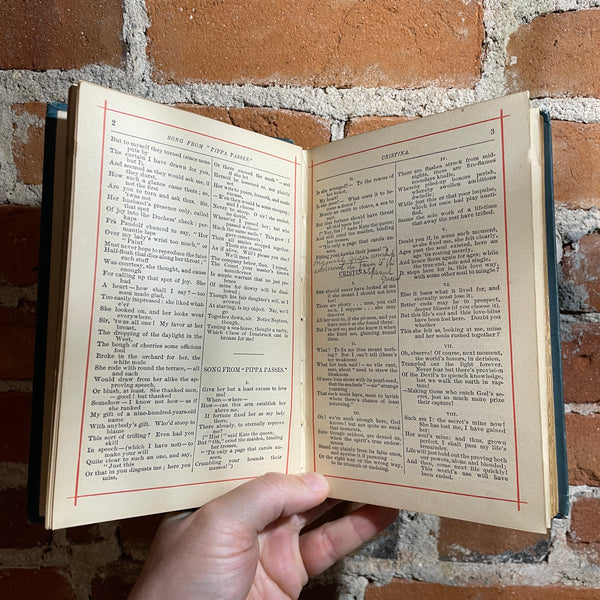 2
SONG FROM "PIPPA PASSES."
But to myself they turned (since none
puts by
The curtain I have drawn for you,
but I)
And seemed as they would ask me, if
they durst,
How such a glance came there; so,
not the first
Are you to turn and ask thus. Sir,
'twas not
Her husband's presence only, called
that spot
Of joy into the Duchess' cheek: per-
haps
Frà Pandolf chanced to say, "Her
mantle laps
Over my lady's wrist too much," or
"Paint
Must never hope to reproduce the faint
Half-flush that dies along her throat;"
such stuff
Was courtesy, she thought, and cause
enough
For calling up that spot of joy. She
had
A heart—how shall I say?—too
soon made glad,
Too easily impressed; she liked what-
e'er
She looked on, and her looks went
everywhere.
Sir, 'twas all one! My favor at her
breast,
The dropping of the daylight in the
West,
The bough of cherries some officious
fool
Broke in the orchard for her, the
white mule
She rode with round the terrace,—all
and each
Would draw from her alike the ap-
proving speech,
Or blush, at least. She thanked men,
—good! but thanked
Somehow—I know not how—as if
she ranked
My gift of a nine-hundred-years-old
name
With anybody's gift. Who'd stoop to
blame
This sort of trifling? Even had you
skill
In speech—(which I have not)—to
make your will
Quite clear to such an one, and say,
"Just this
Or that in you disgusts me; here you
miss,
Or there exceed the mark"—and
if she let
Herself be lessoned so, nor plainly
set
Her wits to yours, forsooth, and made
excuse,
—E'en then would be some stooping;
and I choose
Never to stoop. O sir! she smiled,
no doubt,
Whene'er I passed her; but who
passed without
Much the same smile? This grew; I
gave commands;
Then all smiles stopped together.
There she stands
As if alive. Will't please you rise?
We'll meet
The company below, then. I repeat,
The Count your master's known
munificence
Is ample warrant that no just pre-
tence
Of mine for dowry will be disal-
lowed;
Though his fair daughter's self, as I
avowed
At starting, is my object. Nay, we'll
go
Together down, sir. Notice Neptune,
though,
Taming a sea-horse, thought a rarity,
Which Claus of Innsbruck cast in
bronze for me!
SONG FROM "PIPPA PASSES."
I.
Give her but a least excuse to love
me!
When—where—
How—can this arm establish her
above me,
If fortune fixed her as my lady
there,
There already, to eternally reprove
me?
("Hist!" said Kate the queen;
But "Oh," cried the maiden, binding
her tresses,
"'Tis only a page that carols un-
seen,
Crumbling your hounds their
messes!")
CRISTINA.
3
II.
Is she wronged?—To the rescue of
her honor,
My heart!
Is she poor?—What costs it to be
Merely an earth to cleave, a sea to
part.
But that fortune should have thrust
all this upon her!
("Nay, list!" bade Kate the queen;
And still cried the maiden, binding
her tresses,
"'Tis only a page that carols unseen,
Fitting your hawks their jesses!")
CRISTINA.
I.
She should never have looked at me
if she meant I should not love
her!
There are plenty ... men, you call
such, I suppose ... she may
discover
All her soul to, if she pleases, and yet
leave much as she found them:
But I'm not so, and she knew it when
she fixed me, glancing round
them.
II.
What? To fix me thus meant noth-
ing? But I can't tell (there's
my weakness)
What her look said!—no vile cant,
sure, about "need to strew the
bleakness
Of some lone shore with its pearl-seed,
that the sea feels,"—no "strange
yearning
That such souls have, most to lavish
where there's chance of least
returning."
III.
Oh! we're sunk enough here, God
knows! but not quite so sunk
that moments,
Sure though seldom, are denied us,
when the spirit's true endow-
ments
Stand out plainly from its false ones,
and apprise it if pursuing
Or the right way or the wrong way,
to its triumph or undoing.
IV.
There are flashes struck from mid-
nights, there are fire-flames
noondays kindle,
Whereby piled-up honors perish,
whereby swollen ambitions
dwindle;
While just this or that poor impulse,
which for once had play unsti-
fled,
Seems the sole work of a lifetime
that away the rest have trifled.
V.
Doubt you if, in some such moment,
as she fixed me, she felt clearly,
Ages past the soul existed, here an
age 'tis resting merely,
And hence fleets again for ages: while
the true end, sole and single,
It stops here for is, this love-way,
with some other soul to mingle?
VI.
Else it loses what it lived for, and
eternally must lose it;
Better ends may be in prospect,
deeper blisses if you choose it,
But this life's end and this love-bliss
have been lost here. Doubt you
whether
This she felt as, looking at me, mine
and her souls rushed together?
VII.
Oh, observe! Of course, next moment,
the world's honors, in derision,
Trampled out the light forever.
Never fear but there's provision
Of the Devil's to quench knowledge,
lest we walk the earth in rap-
ture!
Making those who catch God's se-
cret, just so much more prize
their capture!
VIII.
Such am I: the secret's mine now!
She has lost me, I have gained
her;
Her soul's mine: and thus, grown
perfect, I shall pass my life's
remainder.
Life will just hold out the proving both
our powers, alone and blended;
And then, come next life quickly!
This world's use will have
been ended.